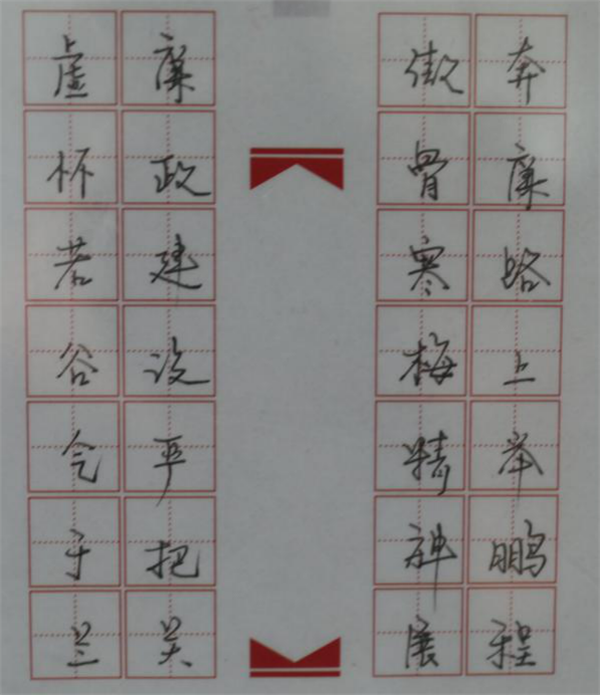 奔康路上举鹏程
傲骨寒梅精神展
廉政建设严把关
虚怀若谷气于兰